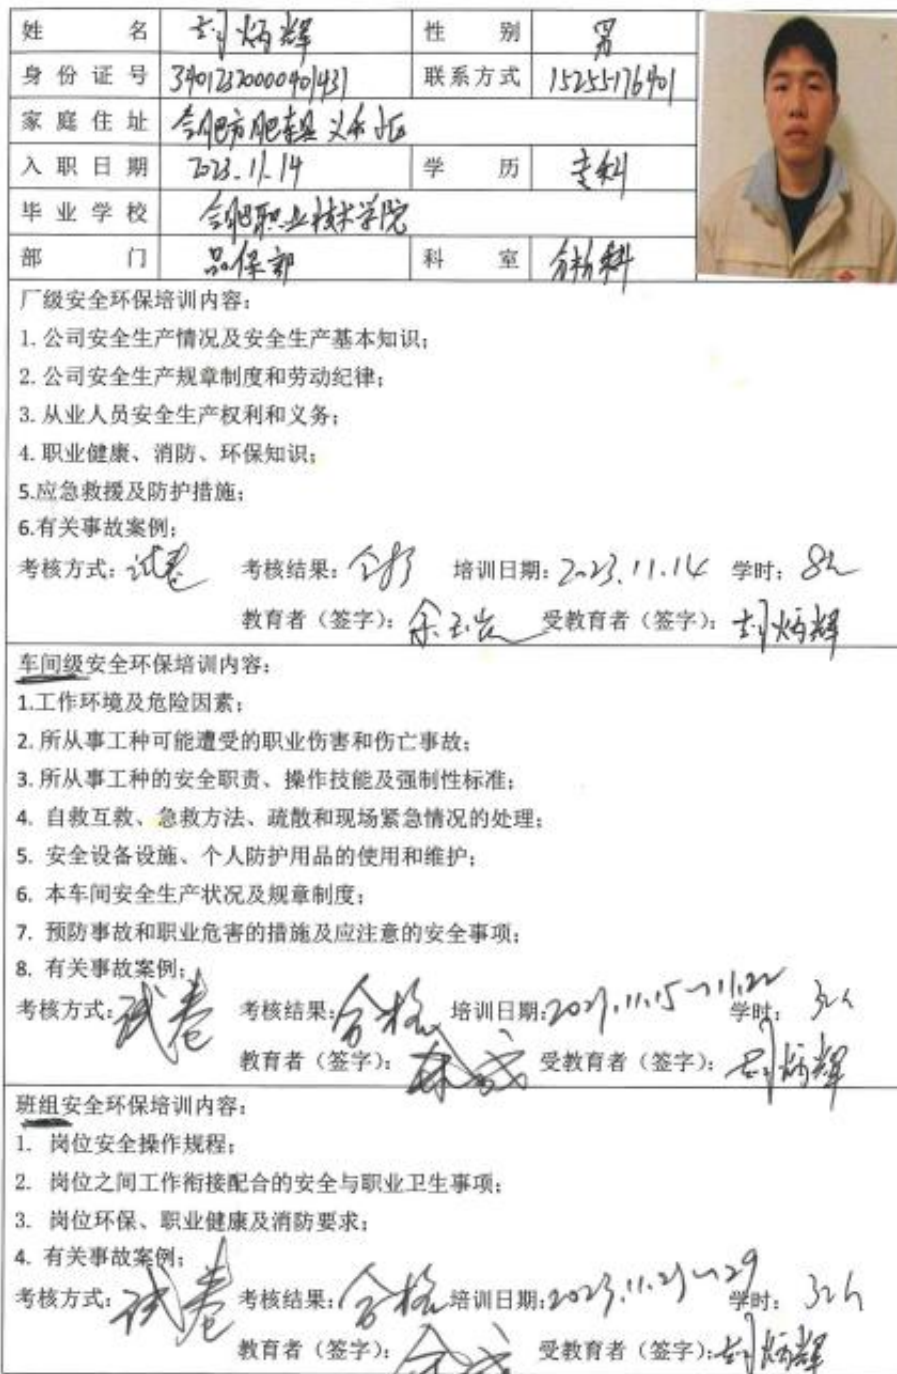 姓名 封炳辉 性别 男
身份证号 联系方式 15255176901
家庭住址 合肥市肥东县
入职日期 2023.11.14 学历 专科
毕业学校 合肥职业技术学院
部门 品保部 科室
厂级安全环保培训内容：
1. 公司安全生产情况及安全生产基本知识；
2. 公司安全生产规章制度和劳动纪律；
3. 从业人员安全生产权利和义务；
4. 职业健康、消防、环保知识；
5.应急救援及防护措施；
6.有关事故案例；
考核方式：试卷 考核结果：合格 培训日期：2023.11.14 学时：8h
教育者（签字）： 受教育者（签字）：封炳辉
车间级安全环保培训内容：
1.工作环境及危险因素；
2. 所从事工种可能遭受的职业伤害和伤亡事故；
3. 所从事工种的安全职责、操作技能及强制性标准；
4. 自救互救、急救方法、疏散和现场紧急情况的处理；
5. 安全设备设施、个人防护用品的使用和维护；
6. 本车间安全生产状况及规章制度；
7. 预防事故和职业危害的措施及应注意的安全事项；
8. 有关事故案例；
考核方式：试卷 考核结果：合格 培训日期：2023.11.15~11.22 学时：32h
教育者（签字）： 受教育者（签字）：封炳辉
班组安全环保培训内容：
1. 岗位安全操作规程；
2. 岗位之间工作衔接配合的安全与职业卫生事项；
3. 岗位环保、职业健康及消防要求；
4. 有关事故案例；
考核方式：试卷 考核结果：合格 培训日期：2023.11.23~29 学时：32h
教育者（签字）： 受教育者（签字）：封炳辉